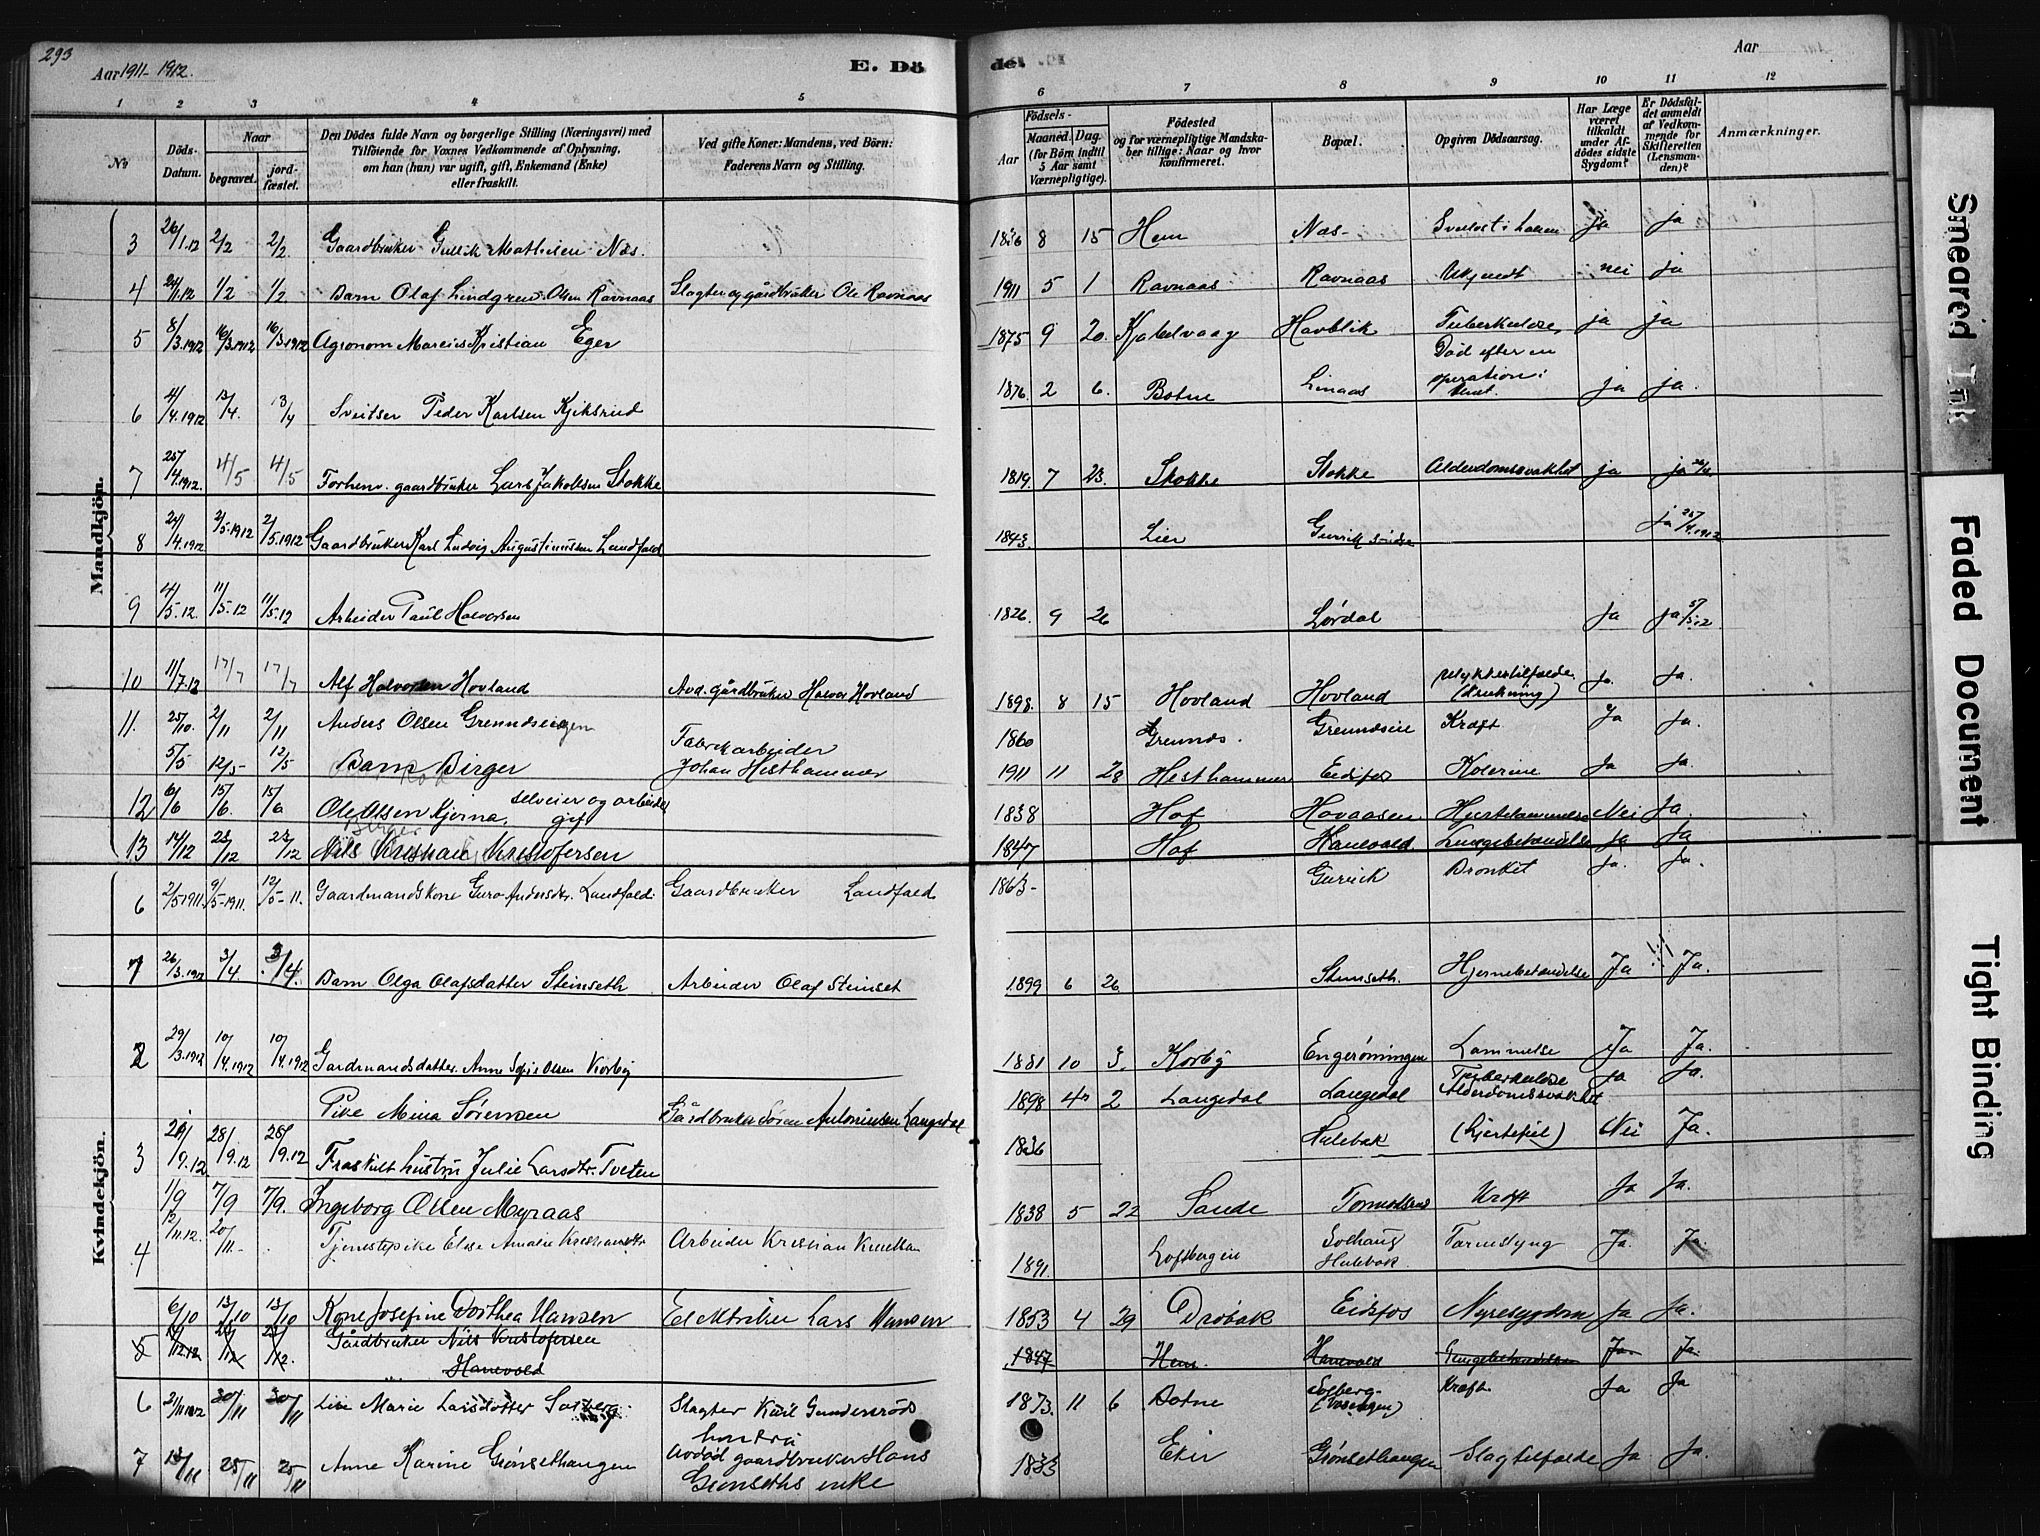 293
Aar 1911-1912.
E. Dö
de.
Aar
1 2 3 4 5 6 7 8 9 10 11 12
No
Döds-Datum.
Naar
begravet.
jord-fæstet.
Den Dödes fulde Navn og borgerlige Stilling (Næringsvei) med
Tilföiende for Voxnes Vedkommende af Oplysning,
om han (hun) var ugift, gift, Enkemand (Enke)
eller fraskilt.
Ved gifte Koner: Mandens, ved Börn:
Faderens Navn og Stilling.
Födsels-
Aar
Maaned.
Dag.
(for Börn indtil
5 Aar samt
Værnepligtige).
Födested
og for værnepligtige Mandska-
ber tillige: Naar og hvor
konfirmeret.
Bopæl.
Opgiven Dödsaarsag.
Har Læge
været
tilkaldt
under Af-
dödes sidste
Sygdom?
Er Dödsfal-
det anmeldt
af Vedkom-
mende for
Skifteretten
(Lensman-
den)?
Anmærkninger.
Mandkjön.
3 26/1.12 2/2 2/2 Gaardbruker Gullik Mathisen Næs. 1836 8 15 Hem Næs ja ja
4 24/1.12 1/2 1/2 Barn Olaf Lindgren Olsen Ravnaas Slagter og gårdbruker Ole Ravnaas 1911 5 1 Ravnaas Ravnaas Ukjendt nei ja
5 8/3.1912 16/3.1912 16/3.1912 Agronom Marius Kristian Eger 1875 9 20. Kabelvaag Havblik Tuberkulose ja ja
6 4/4.1912 13/4. 13/4 Sveitser Peder Karlsen Kjiksrud 1876 2 6. Botne Linaas Död efter en operation i ja ja.
7 25/4.1912. 4/5 4/5 Forhenv. gaardbruker Lars Jakobsen Stokke 1819. 7 23. Stokke Stokke Alderdomssvakhet ja ja
8 24/4.1912 2/5.1912 2/5.1912 Gaardbruker Karl Ludvig Augustinussen Landfald 1843. Lier ja 25/4.1912
9 4/5.12. 11/5.12 11/5.12 Arbeider Paul Halvorsen 1826. 9 26 Lördal ja ja 5/5.12
10 11/7.12 17/7 17/7 Alf Halvorsen Hovland Avd. gårdbruker Halvor Hovland 1898. 8 15 Hovland Hovland Ulykkestilfælde (drukning) Ja. Ja.
11. 25/10. 2/11 2/11 Anders Olsen Grenndseiegen 1860 Grennds. Grenndseie Kræft Ja Ja.
5/5 12/5 12/5 Barn Birger Fabrikarbeider Johan Hesthammer 1911 11 28 Hesthammer Eidsfos Kolerine Ja Ja.
12 6/6 15/6. 15/6 Ole Olsen Kjorna, selveier og arbeider gif 1838 Hof Hovaasen Nei Ja.
13 14/12 23/12 23/12 Nils Kristian Kristofersen 1847 Hof Hanevold Lungebetændelse Ja Ja
Kvindekjön.
6 2/5 1911. 9/5-1911. 12/5-11. Gaardmandskone Guro Andersdtr. Landfald. Gaardbruker Landfald 1863- Gurrik Bronkit Ja. Ja.
1 26/3.1912 3/4. 3/4. Barn Olga Olafsdatter Steinseth Arbeider Olaf Steinset 1899 6 26 Steinseth. Hjernebetændelse Ja Ja.
2 29/3.1912 10/4.1912 10/4.1912 Gardmandsdatter Anne Sofie Olsen Korbÿ 1881 10 3. Korbÿ Engerönningen Lammelse Ja Ja.
Pike Mina Sörensen Gårdbruker Sören Antoniusen Langedal 1898 4 2 Langedal Langedal Tuberkulose ja Ja.
3 21/9.12 28/9.12 28/9.12 Fraskilt hustru Julie Larsdtr. Tveten 1836 Hulebak Alderdomssvakhet (hjertefeil) Nei Ja.
1/9 7/9 7/9. Ingeborg Olsen Myraas 1838 5 22 Sande Kræft Ja Ja.
4 12/11.12. 20/11. Tjenestepike Elise Amalie Kristiansdtr. Arbeider Kristian 1891. Loftbergin Solhaug Hulebak Tarmslyng Ja. Ja.
6/10 13/10 13/10 Kone Josefine Dorthea Hansen Lars Hansen 1853 4 29 Dröbak Eidsfos Nyresygdom Ja Ja.
5 14/12.12 23/12 23/12. Gårdbruker Nils Kristofersen Hanevold 1847 Hem. Hanevold Lungebetændelse Ja Ja.
6 21/11 1912 30/11 30/11 Live Marie Larsdatter Solberg. Slagter Karl Gundersröds hustru 1873. 11 6 Botne Solberg Kræft. Ja Ja
7 18/11 25/11 25/11 Anne Karine Grönsethaugen Avdöd gaardbruker Hans Grönseths enke 1833 Eker Grönsethaugen Slagtilfælde Ja Ja.
Smeared Ink
Faded Document
Tight Binding